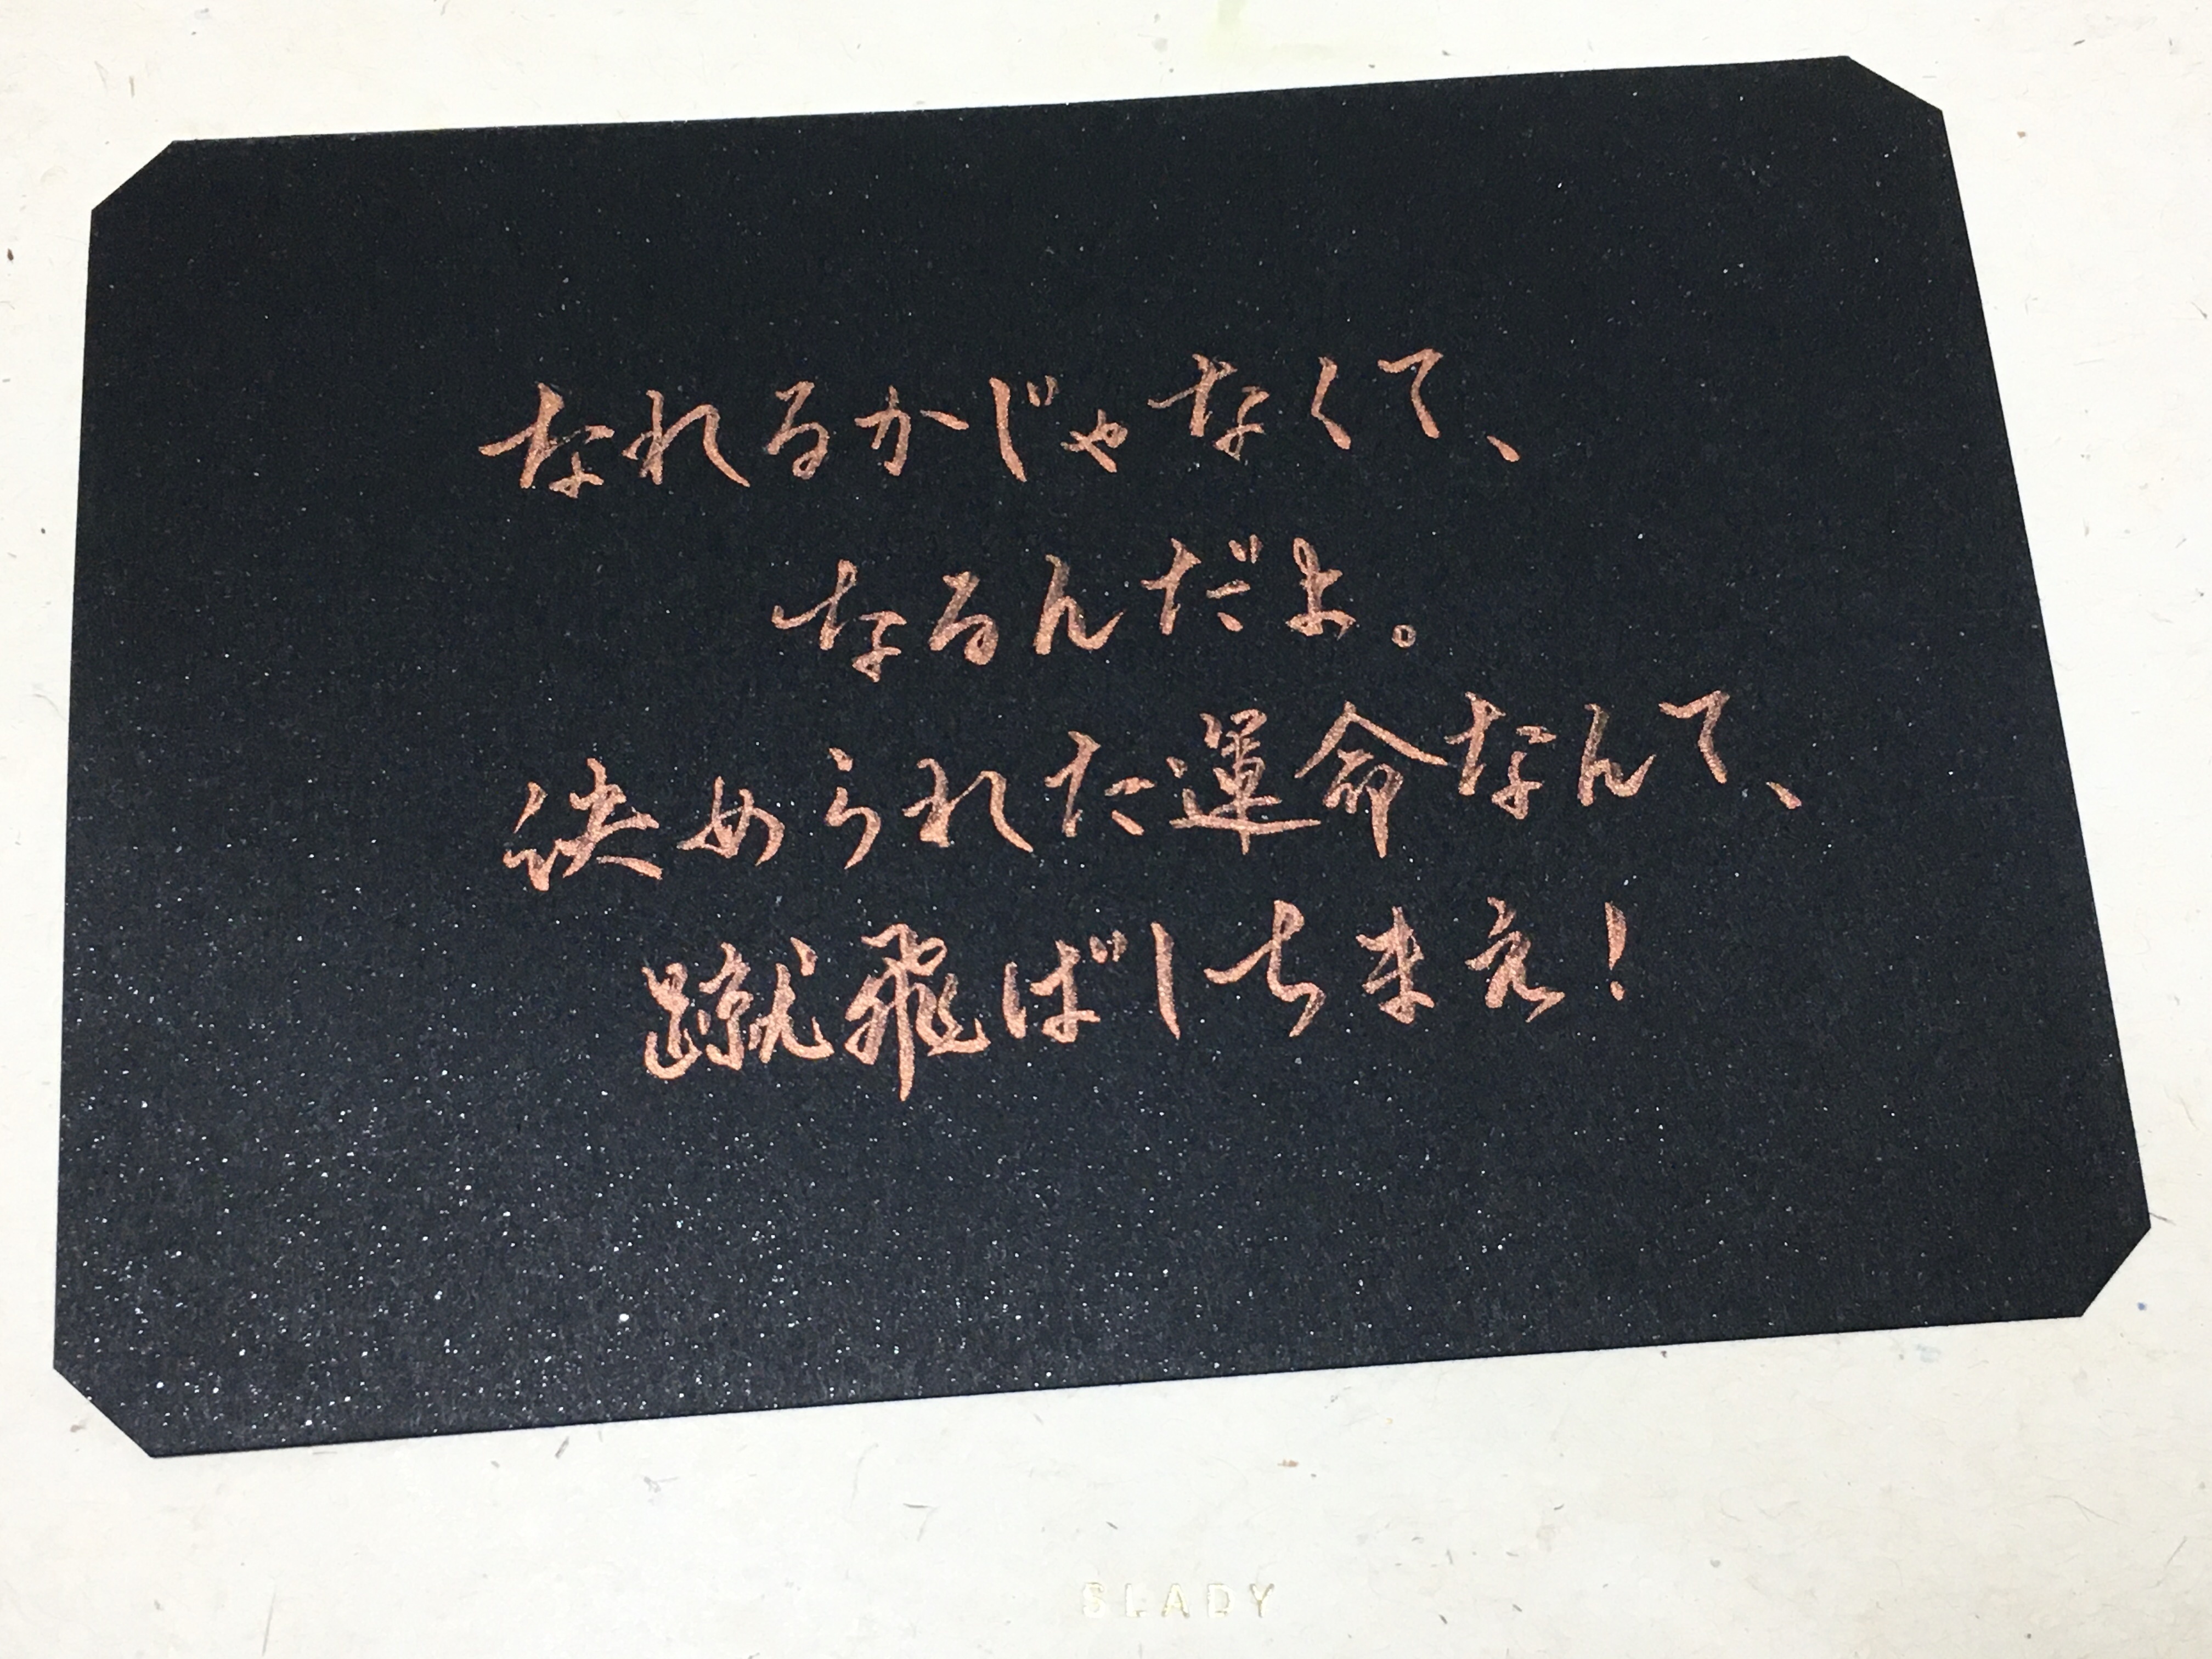 なれるかじゃなくて、
なるんだよ。
決められた運命なんて、
蹴飛ばしちまえ！
SLADY